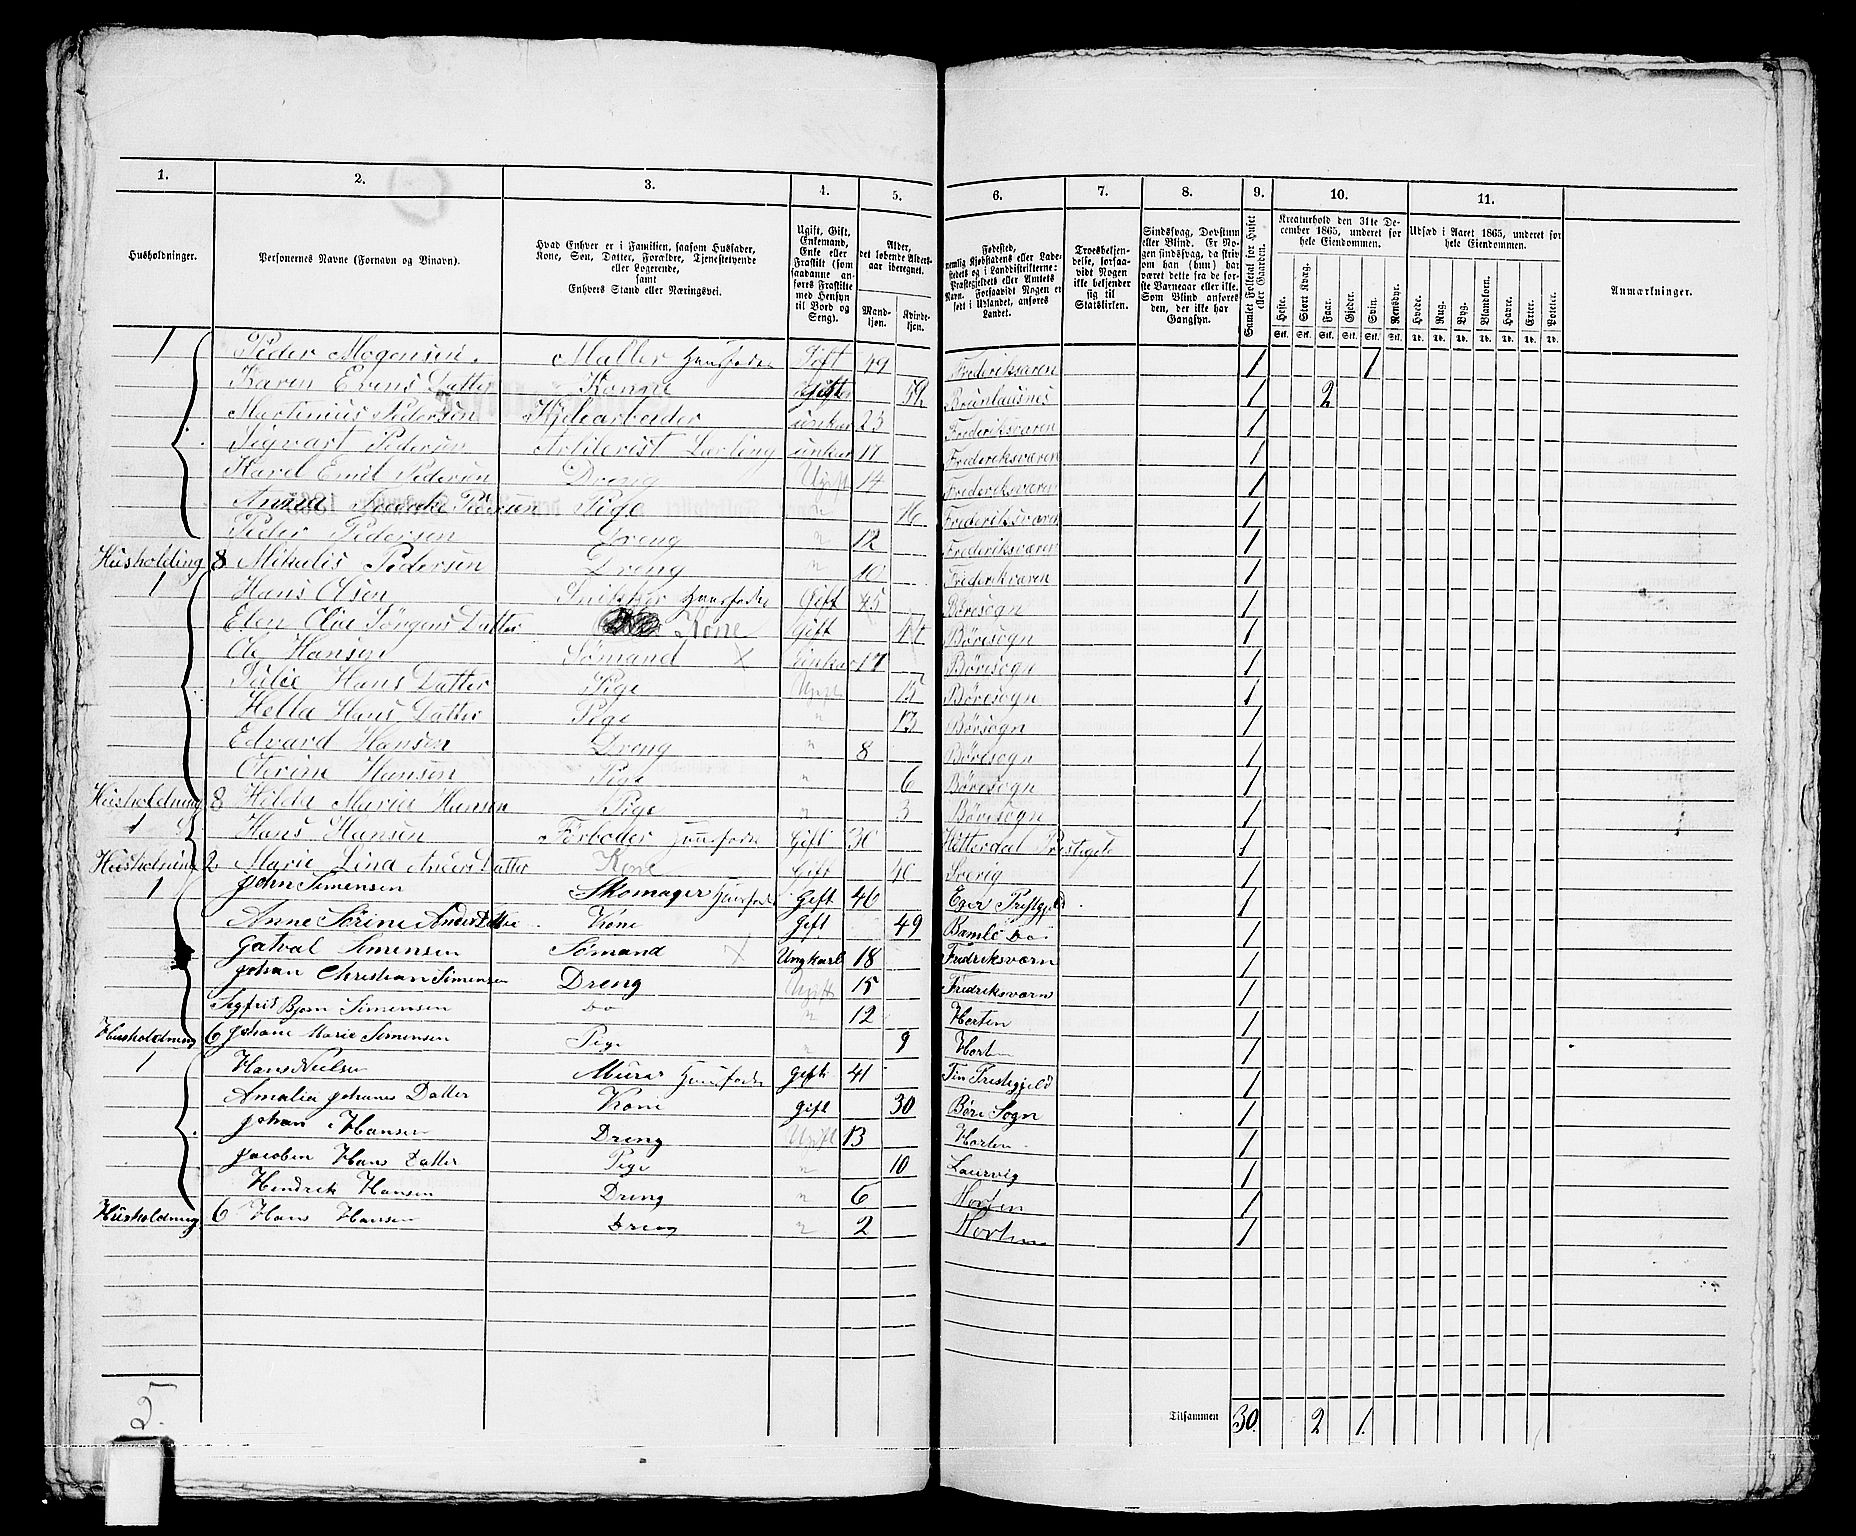 1. 2. 3. 4. 5. 6. 7. 8. 9. 10. 11.
Husholdninger. Personernes Navne (Fornavn og Binavn). Hvad Enhver er i Familien, saasom Husfader, Kone, Søn, Datter, Forældre, Tjenestetyende eller Logerende, samt Enhvers Stand eller Næringsvei. Ugift, Gift, Enkemand, Enke eller Fraskilt (som saadanne anføres Fraskilte med Hensyn til Bord og Seng). Alder, det løbende Aldersaar iberegnet. Mandkjøn. Kvindekjøn. Fødested, nemlig Kjøbstadens eller Ladestedets og i Landdistrikterne: Præstegjeldets eller Amtets Navn. Forsaavidt Nogen er født i Udlandet, anføres Landet. Troesbekjendelse, forsaavidt Nogen ikke bekjender sig til Statskirken. Sindssvag, Døvstum eller Blind. Er Nogen sindssvag, da skriv om han (hun) har været dette fra de første Barneaar eller ikke. Som Blind anføres den, der ikke har Gangsyn. Samlet Folketal for Huset eller Gaarden. Kreaturhold den 31te December 1865, underet for hele Eiendommen. Udsæd i Aaret 1865, underet for hele Eiendommen. Anmærkninger.
Heste. Stort Kvæg. Faar. Gjeder. Sviin. Rensdyr. Hvede. Rug. Byg. Blandkorn. Havre. Erter. Poteter.
Stk. Stk. Stk. Stk. Stk. Stk. Td. Td. Td. Td. Td. Td. Td.
1 Peder Mogensen Maller Huusfader Gift 49 Frederiksværen 1 1
Karen Evens Datter Konne Gifter 52 Brunlausnes 1 2
Martinius Pedersen Kjdearbeider unkar 23 Frederiksværen 1
Sigvart Pedersen Artilerist Lærling unkar 17 Frederiksværen 1
Karel Emil Pedersen Dreng Ugift 14 Frederiksværen 1
Anna Fredrike Pedersen Pige " 16 Frederiksværen 1
Peder Pedersen Dreng " 12 Frederiksværen 1
Husholding 8 Mikalis Pedersen Dreng " 10 Frederiksværen 1
1 Hans Olsen Sniseker Huusfader Gift 45 Børesogn 1
Elen Olie Sørgens Datter Kone Gift 44 Børesogn 1
Ole Hansen Sømand X unkar 17 Børesogn 1
Julie Hans Datter Pige Ugift 15 Børesogn 1
Hella Hans Datter Pige " 13 Børsogn 1
Edvard Hansen Dreng " 8 Børesogn 1
Oterine Hansen Pige " 6 Børesogn 1
Husholdning 8 Hilda Maria Hansen Pige " 3 Børesogn 1
1 Hans Hansen Forboder Huusfader Gift 30 Hitterdal Prestigele 1
Husholdning 2 Marie Lina Anders Datter Kone Gift 40 Sverig 1
1 John Simensen Skomager Huusfader Gift 46 Eger Prestgjeld 1
Anne Sörine Andersdatter Kone Gift 49 Bamle 1
Gatval Simensen Sømand X Ungkarl 18 Fredriksværn 1
Johan Christian Simensen Dreng Ugift 15 Fredriksværn 1
Sigfris Bjørn Simensen do " 12 Horten 1
Husholdning 6 Johane Marie Simensen Pige " 9 Horten 1
1 Hans Neilsen Murer Huusfader Gift 41 Tin Prestegjeld 1
Amalia Johanes Datter Kone gift 30 Børe Sogn 1
Johan Hansen Dreng Ugift 13 Horten 1
Jacobin Hans Datter Pige " 10 Laurvig 1
Hendrik Hansen Dreng " 6 Horten 1
Husholdning 6 Hans Hansen Dreng " 2 Horten 1
5.
Tilsammen 30. 2 1.